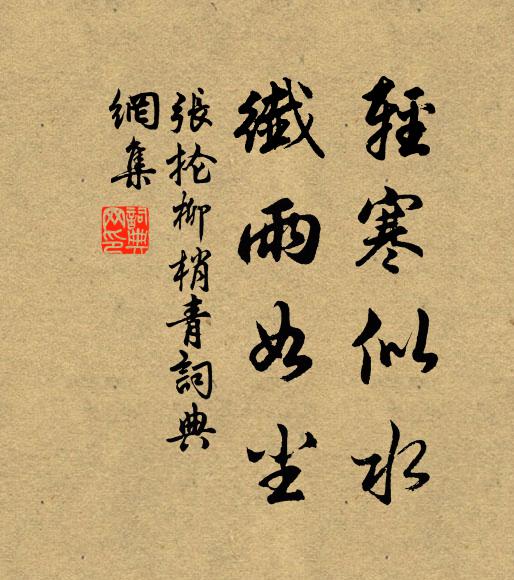 輕寒似水
纖雨如尘
張抡柳梢青詞典
網集
詞典
网印